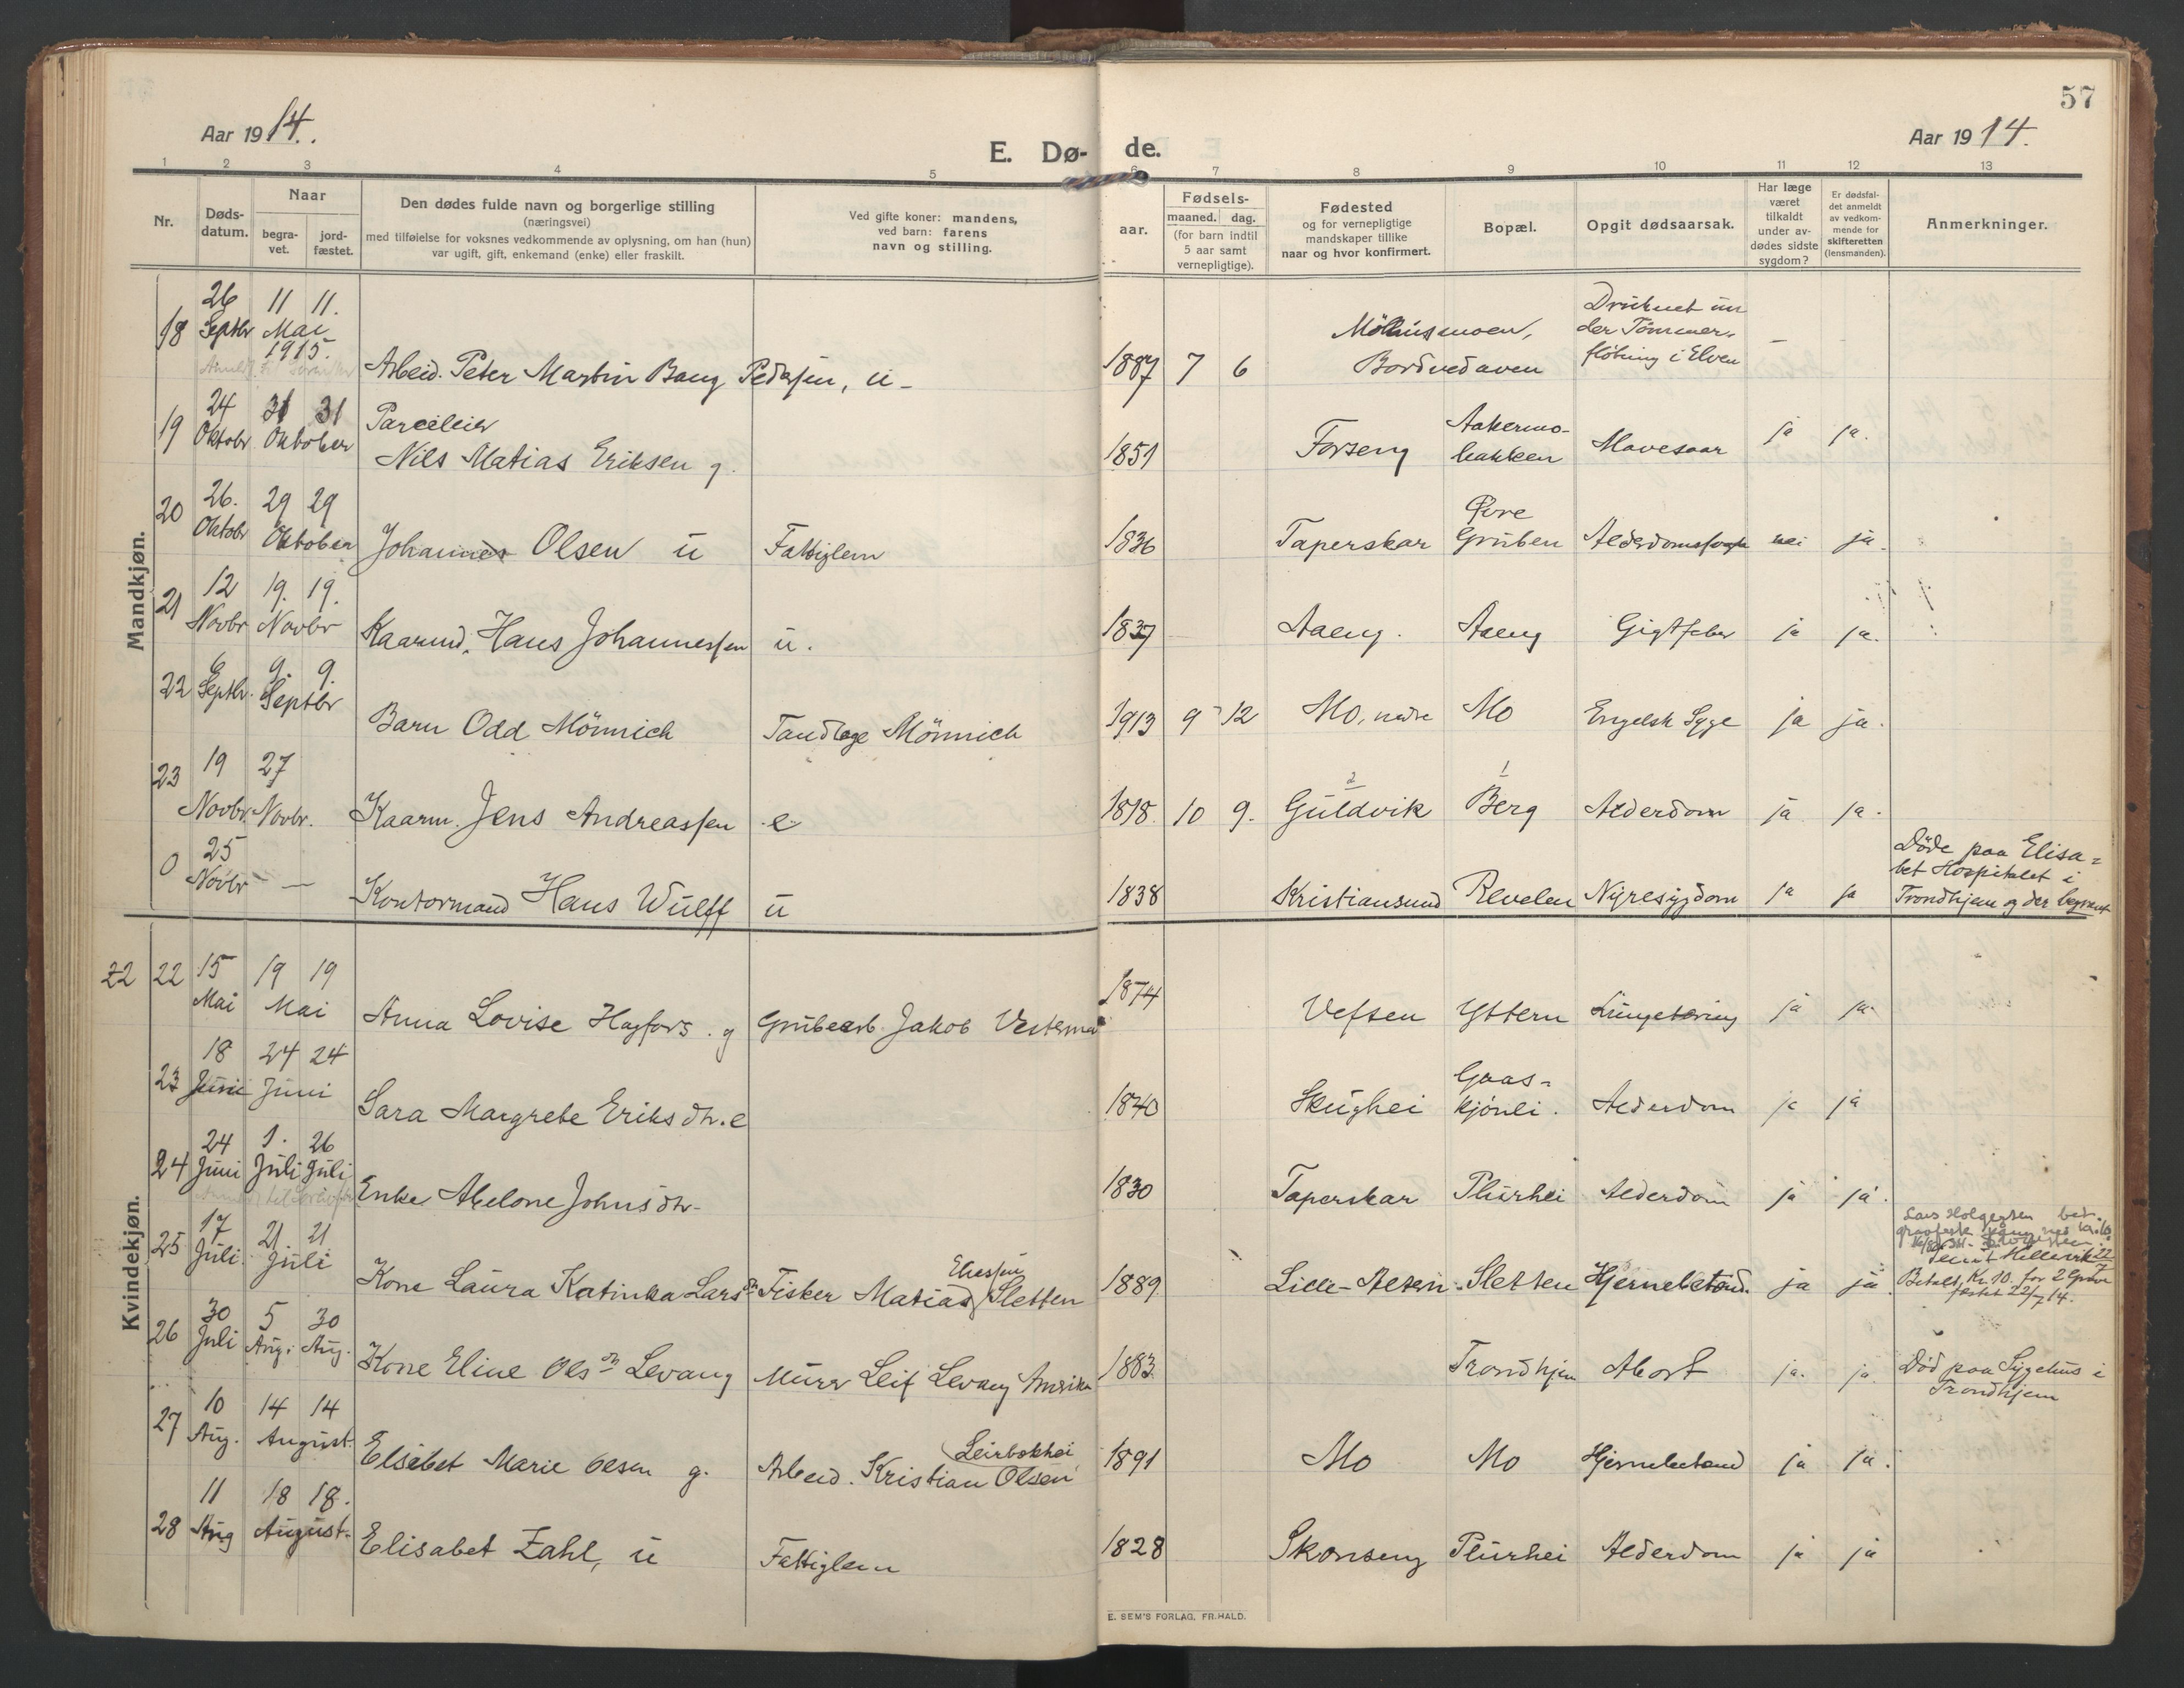 57
Aar 1914.
Aar 1914.
E. Dø-de.
1 2 3 4 5 6 7 8 9 10 11 12 13
Nr.
Døds-datum.
Naar
begra-vet.
jord-fæstet.
Den dødes fulde navn og borgerlige stilling
(næringsvei)
med tilføielse for voksnes vedkommende av oplysning, om han (hun)
var ugift, gift, enkemand (enke) eller fraskilt.
Ved gifte koner: mandens,
ved barn: farens
navn og stilling.
aar.
Fødsels-
maaned. dag.
(for barn indtil
5 aar samt
vernepligtige).
Fødested
og for vernepligtige
mandskaper tillike
naar og hvor konfirmert.
Bopæl.
Opgit dødsaarsak.
Har læge
været
tilkaldt
under av-
dødes sidste
sygdom?
Er dødsfal-
det anmeldt
av vedkom-
mende for
skifteretten
(lensmanden).
Anmerkninger.
Mandkjøn.
18 26 Septbr 11 11. Mai 1915. Arbeid. Peter Martin Bang Pedersen, u - 1887 7 6 Möllhusmoen, Bordvedaven Druknet un der Tömmer-flötning i Elven — -
19 24 Oktobr 31 31 Oktober Parceleier Nils Matias Eriksen g. 1851 Forseng Aakermo-bakken Mavesaar ja ja.
20 26. Oktobr 29 29 Oktober Johannes Olsen u Fattiglem 1836 Taperskar Övre Gruben Alderdomssvagh nei ja.
21 12 Novbr 19. 19. Novbr Kaarmd. Hans Johannessen u. 1837 Aaeng. Aaeng Gigtfeber ja ja.
22 6 Septbr. 9. 9. Septbr Barn Odd Mönnich Tandlæge Mönnich 1913 9 12 Mo, nedre Mo Engelsk Syge ja ja.
23 19 Novbr. 27 Novbr. Kaarm. Jens Andreassen e 1818. 10 9. 2 Guldvik 1 Berg Alderdom ja ja.
0 25 Novbr — Kontormand Hans Wulff u 1838 Kristiansund Revelen Nyresygdom ja ja Döde paa Elisa=bet Hospitalet i Trondhjem og der begravet
Kvindekjøn.
22 22 15 Mai 19 19 Mai Anna Lovise Hagfors. g Grubearb. Jakob Vesterma 1874 Vefsen Yttern Lungetæring ja ja.
23 18 Juni 24 24 Juni Sara Margrete Eriksdtr. e 1840 Skughei Gaas=kjönli. Alderdom ja ja
24 24 Juni 1. Juli 26 Juli Enke Abelone Johnsdtr- 1830 Taperskar Plurhei Alderdom ja ja.
25 17 Juli. 21 21 Juli Kone Laura Katinka Larsdr Fisker Matias Eliassen Sletten 1889 Lille-Alteren Sletten Hjernebetænd. ja ja. Lars Holgersen bet.
Betalt Kr. 10. for 2 Grave
festet 22/7 14.
26 30 Juli 5 Aug. 30 Aug. Kone Eline Olsdr Levang Murer Leif Levang Amerika 1883. Trondhjem Abort ja. ja. Död paa Sygehus i Trondhjem
27 10 Aug. 14 14 August. Elsebet Marie Olsen g. Arbeid. Kristian Olsen Leirbokhei 1891 Mo Mo Hjernebetænd ja ja.
28 11 Aug 18 18. August. Elisabet Zahl, u Fattiglem 1828 Skonseng Plurhei Alderdom ja ja
E. SEM'S FORLAG, FR.HALD.